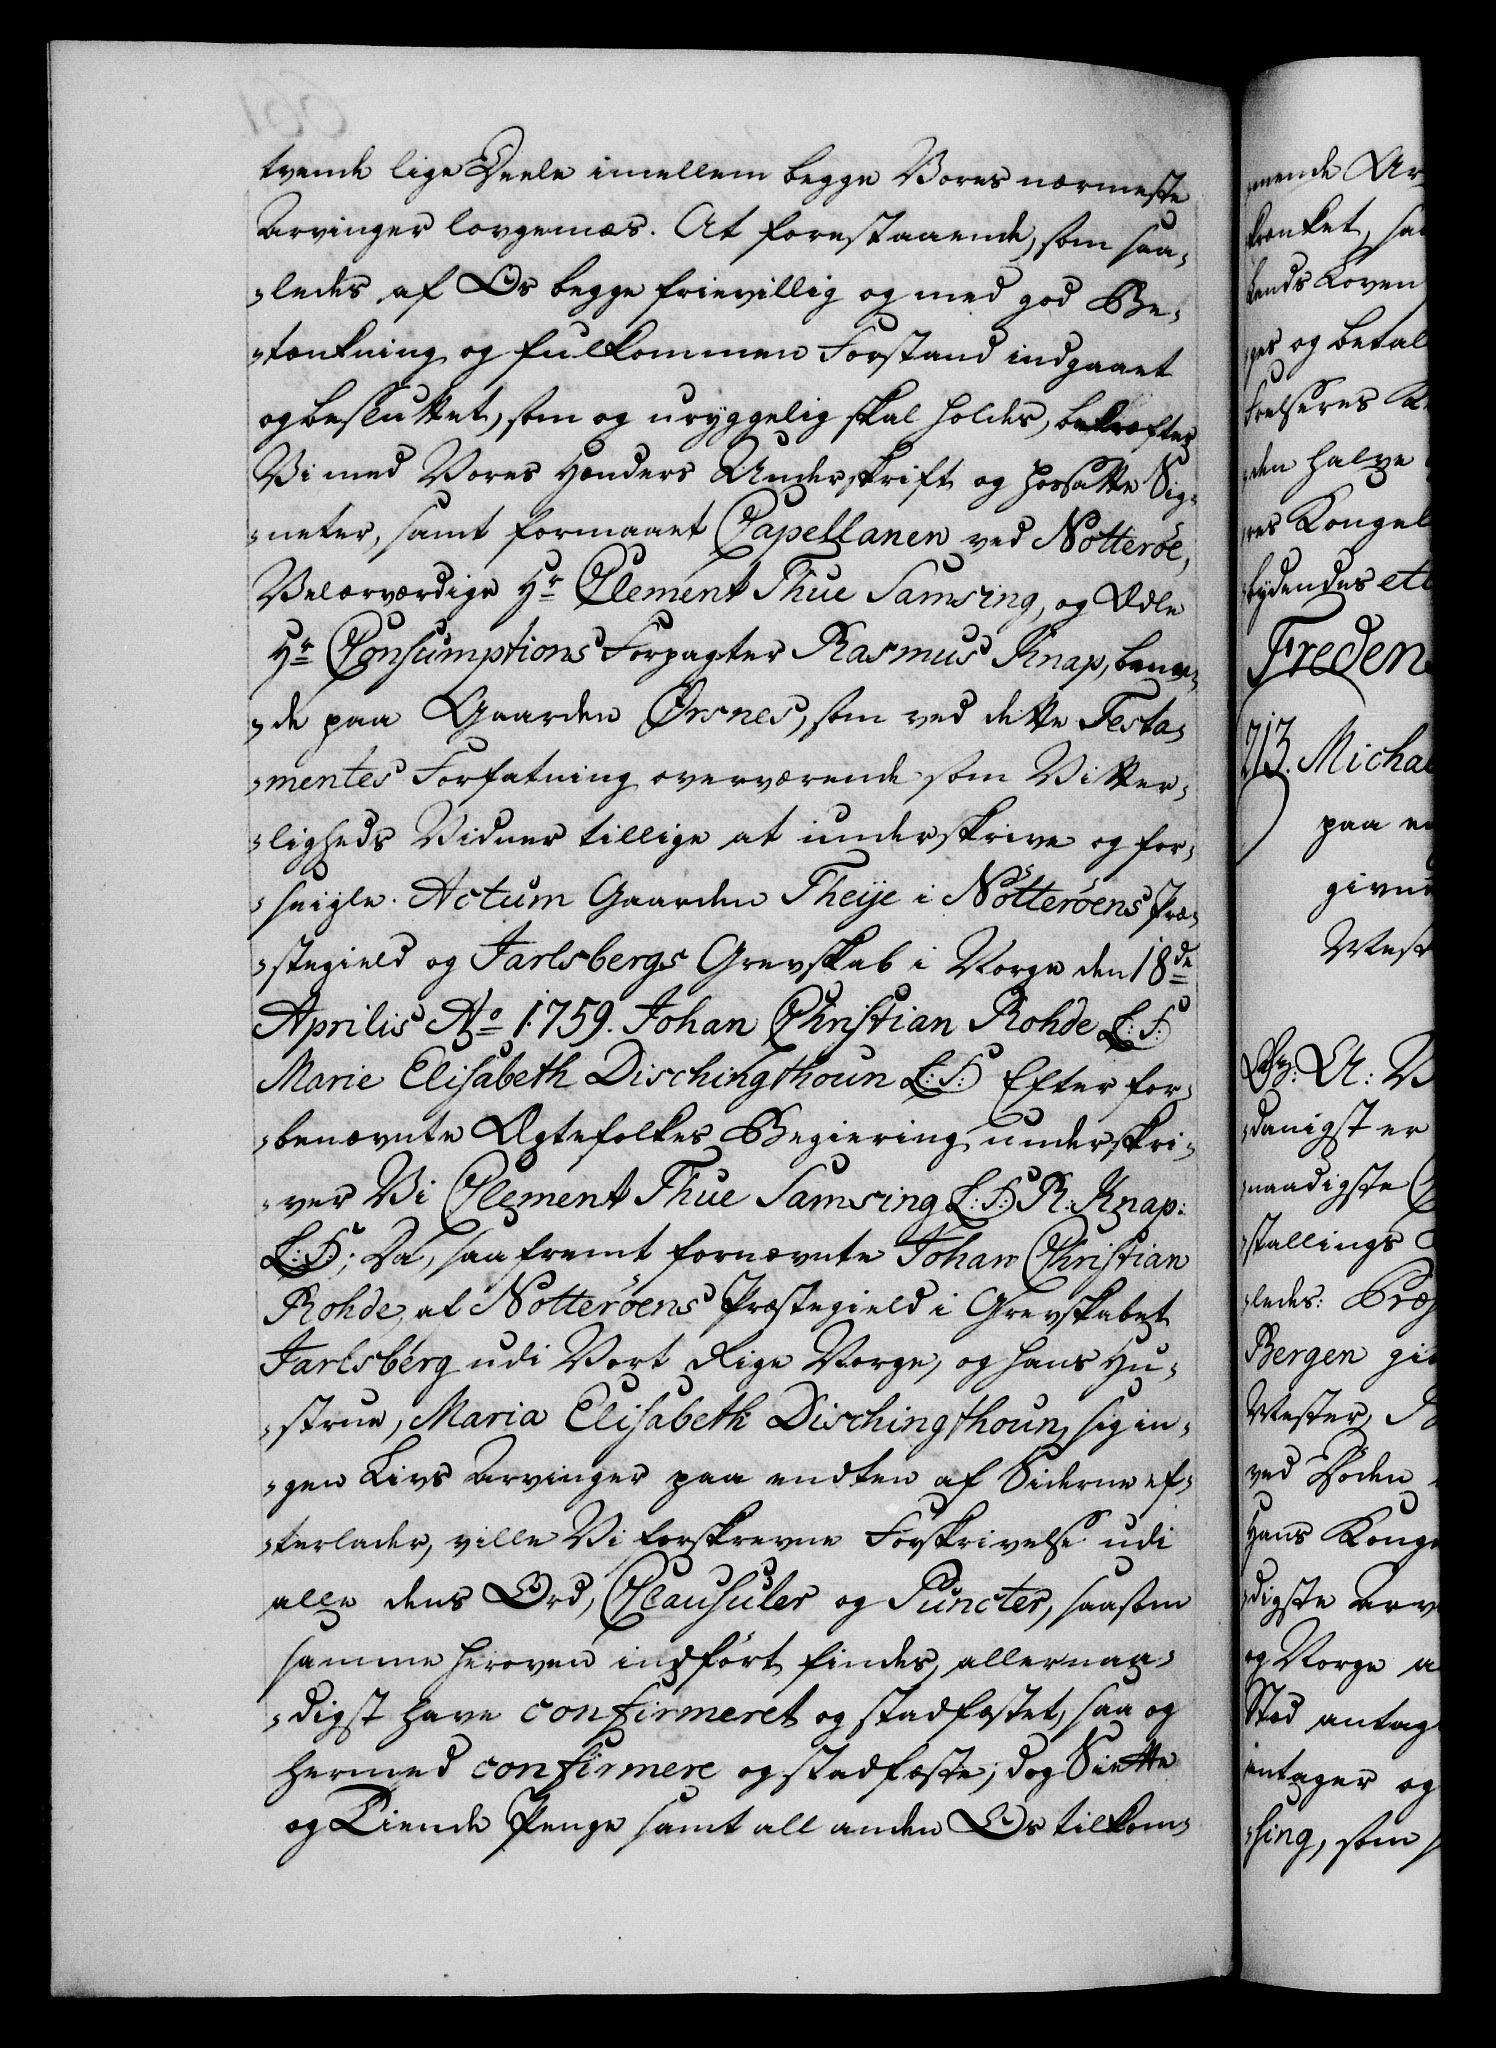 tvende lige Deele imellem begge Vores nærmeste
Arvinger lovgemæs. At forestaaende, som saa-
-ledes af Os begge frievillig og med god Be-
-tænkning og fulkommen Forstand indgaaet
og besluttet, som og uryggelig skal holdes, bekræfter
Vi med Vores Hænders Underskrift og hossatte Sig-
-neter, samt formaaet Capellanen ved Nötteröe,
Velærværdige Hr. Clement Thue Samsing, og Ædle
Hr. Consumptions Forpagter Rasmus Knap, boen-
-de paa Gaarden Ørsnes, som ved dette Testa-
-mentes Forfatning overværende som Vitter-
-ligheds Vidner tillige at underskrive og for-
-seigle. Actum Gaarden Theije i Nötteröens Præ-
-stegield og Jarlsbergs Grevskab i Norge den 18de
Aprilis Ao 1759. Johan Christian Rohde L:S:
Marie Elisabeth Dischingthoun L:S: Efter for-
-benævnte Ægtefolkes Begiering underskri-
-ver Vi Clement Thue Samsing L:S: R: Knap:
L:S:; Da, saafremt fornævnte Johan Christian
Rohde, af Nötteröens Præstegield i Grevskabet
Jarlsberg udi Vort Rige Norge, og hans Hu-
-strue, Maria Elisabeth Dischingthoun, sig in-
-gen Livs Arvinger paa endten af Siderne ef-
-terlader, ville Vi forskrevne Forskrivelse udi
alle dens Ord, Clausuler og Puncter, saasom
samme heroven indført findes, allernaa-
-digst have confirmeret og stadfæstet, saa og
hermed confirmere og stadfæste; dog Siette
og Tiende Penge samt all anden Os tilkom-
-mende Ar
krænket, saa
Lands Loven
-ger og betal
den halve
-res Kongel
-bydendes etc
Freden
213. Michae
paa en
givne
West
-danigst er
-naadigste
-stallings
-ledes:
Bergen gi
Wester,
ved Döden
Hans Kong
-digste Arv
og Norge a
Stad antag
antager og
-sing, som